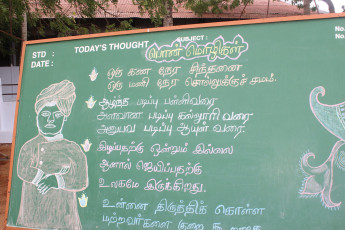 STD :
DATE :
TODAY'S THOUGHT
SUBJECT :
No.
No.
பொன் மொழிகள்
ஒரு கண நேர சிந்தனை
ஒரு மணி நேர சொல்லுக்குச் சமம்.
ஆழ்ந்த படிப்பு பள்ளிவரை
அளவான படிப்பு கல்லூரி வரை
அனுபவ படிப்பு ஆயுள் வரை.
இழப்பதற்கு ஒன்றும் இல்லை
ஆனால் ஜெயிப்பதற்கு
உலகமே இருக்கிறது.
உன்னை திருத்திக் கொள்ள
மற்றவர்களை குறை